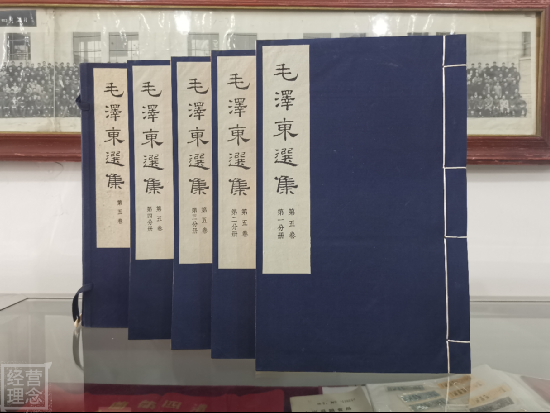 毛澤東選集
第五卷
毛澤東選集
第五卷
第四分册
毛澤東選集
第五卷
第三分册
毛澤東選集
第五卷
第二分册
毛澤東選集
第五卷
第一分册
经营
理念